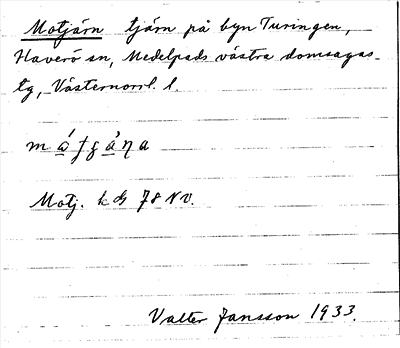 Motjärn tjärn på byn Turingen,
Haverö sn, Medelpads västra domsagas
tg, Västernorrl. l
Motj. k 78 NV.
Valter Jansson 1933.